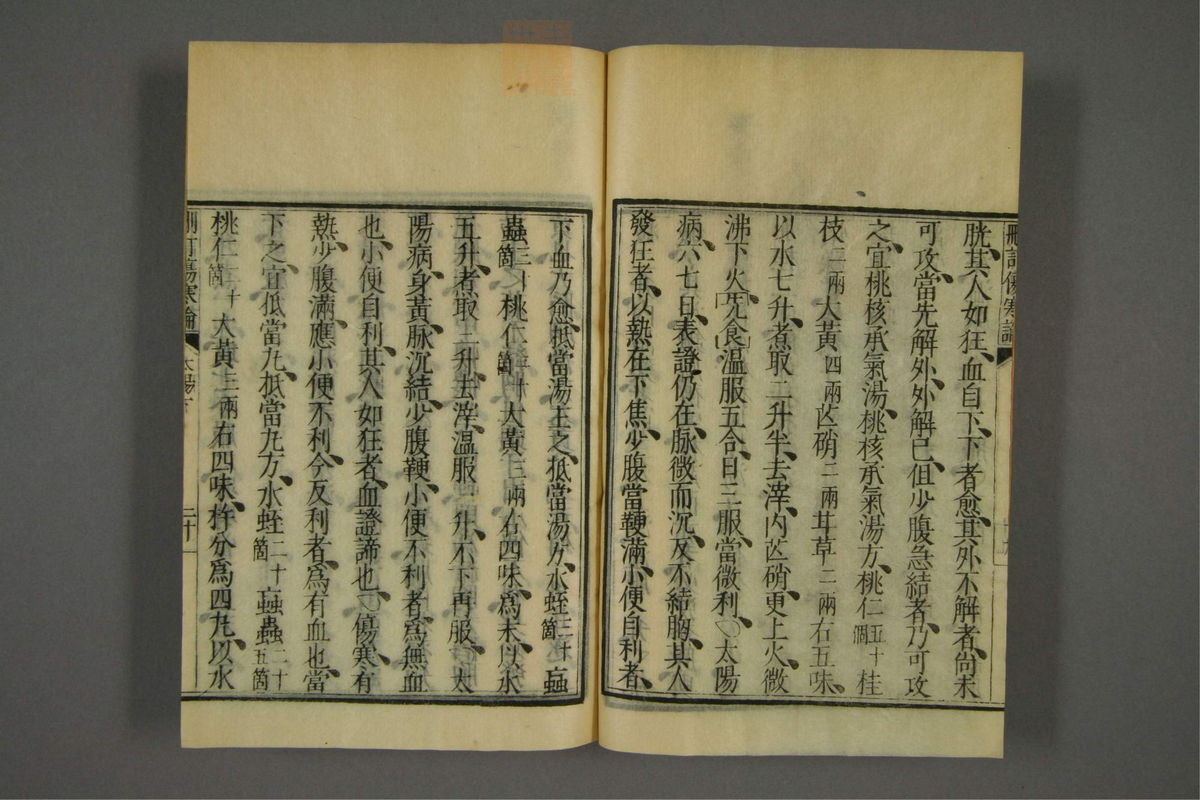 刪訂傷寒論
胱、其人如狂、血自下、下者愈、其外不解者、尚未
可攻、當先解外、外解已、但少腹急結者、乃可攻
之、宜桃核承氣湯、桃核承氣湯方、桃仁五十箇桂
枝二兩大黃四兩芒硝二兩甘草二兩右五味、
以水七升、煮取二升半、去滓、內芒硝、更上火、微
沸下火、「先食」溫服五合、日三服、當微利、○太陽
病、六七日、表證仍在、脉微而沉、反不結胸、其人
發狂者、以熱在下焦、少腹當鞕滿、小便自利者、
下血乃愈、抵當湯主之、抵當湯方、水蛭三十箇䖟
蟲三十箇桃仁二十箇大黃三兩右四味、爲末、以水
五升、煮取三升、去滓、溫服一升、不下再服、○太
陽病、身黃、脉沉結、少腹鞕、小便不利者、爲無血
也、小便自利、其人如狂者、血證諦也、○傷寒有
熱、少腹滿、應小便不利、今反利者、爲有血也、當
下之、宜抵當丸、抵當丸方、水蛭二十箇䖟蟲二十五箇
桃仁二十箇大黃三兩右四味、杵分爲四丸、以水
刪訂傷寒論 太陽下 二十